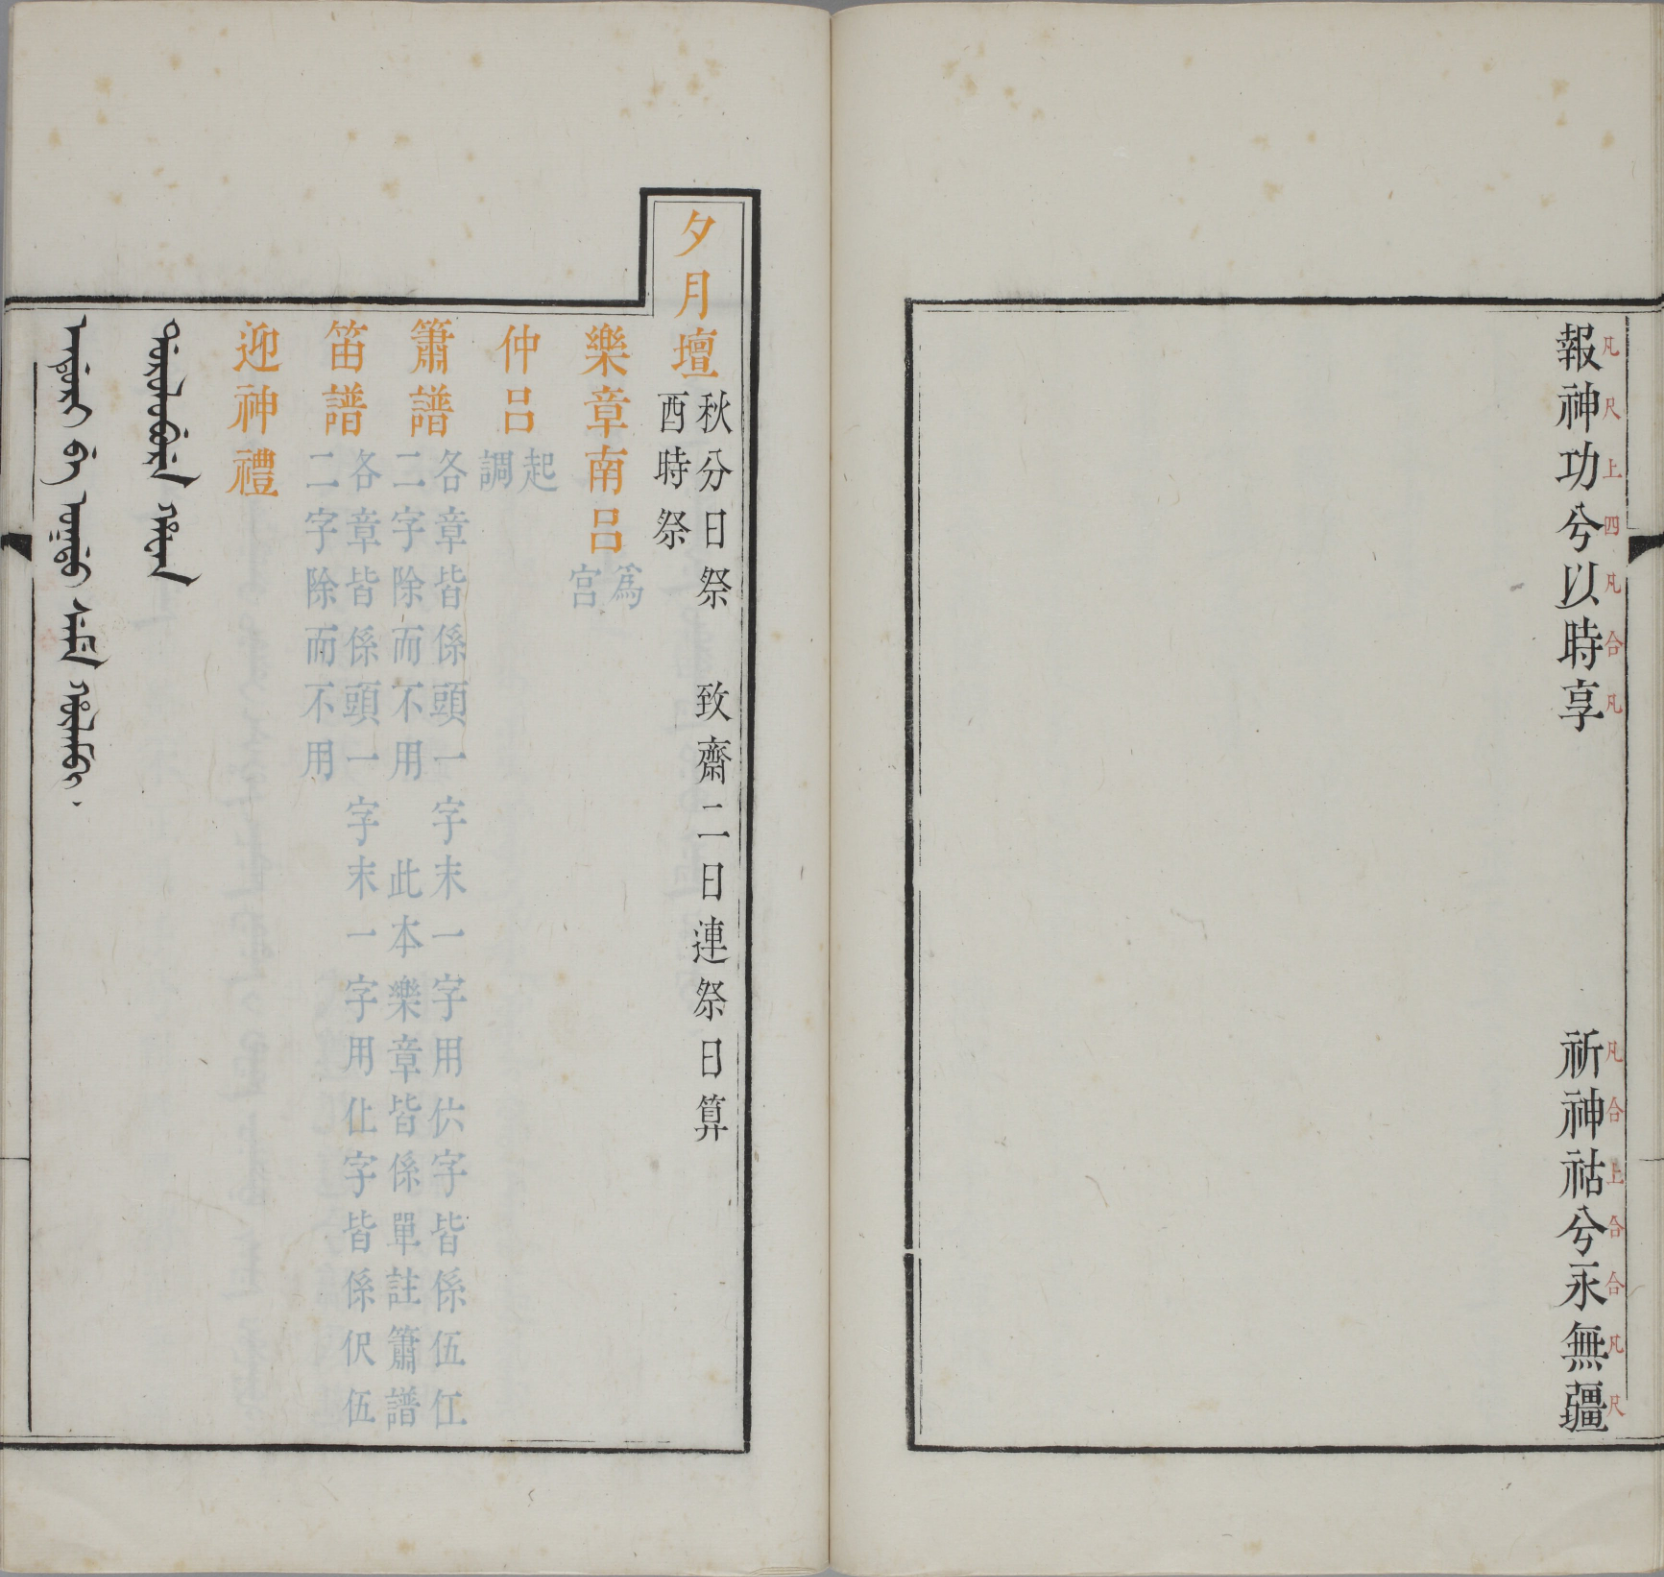 凡尺上四凡合凡 凡合上合合凡尺
報神功兮以時享 祈神祜兮永無疆
夕月壇
秋分日祭 致齋二日連祭日算
酉時祭
樂章南呂
爲
宮
仲呂
起
調
簫譜
各章皆係頭一字末一字用㐲字皆係伍仜
二字除而不用 此本樂章皆係單註簫譜
笛譜
各章皆係頭一字末一字用仩字皆係伬伍
二字除而不用
迎神禮